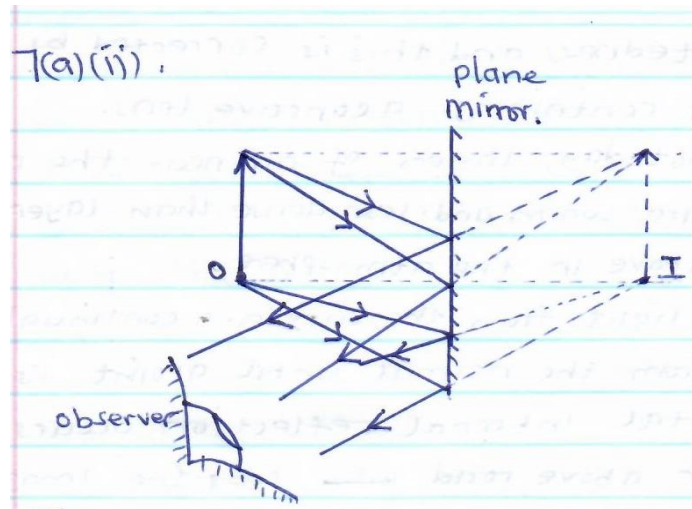 7(a)(ii).
plane
mirror.
O
I
observer